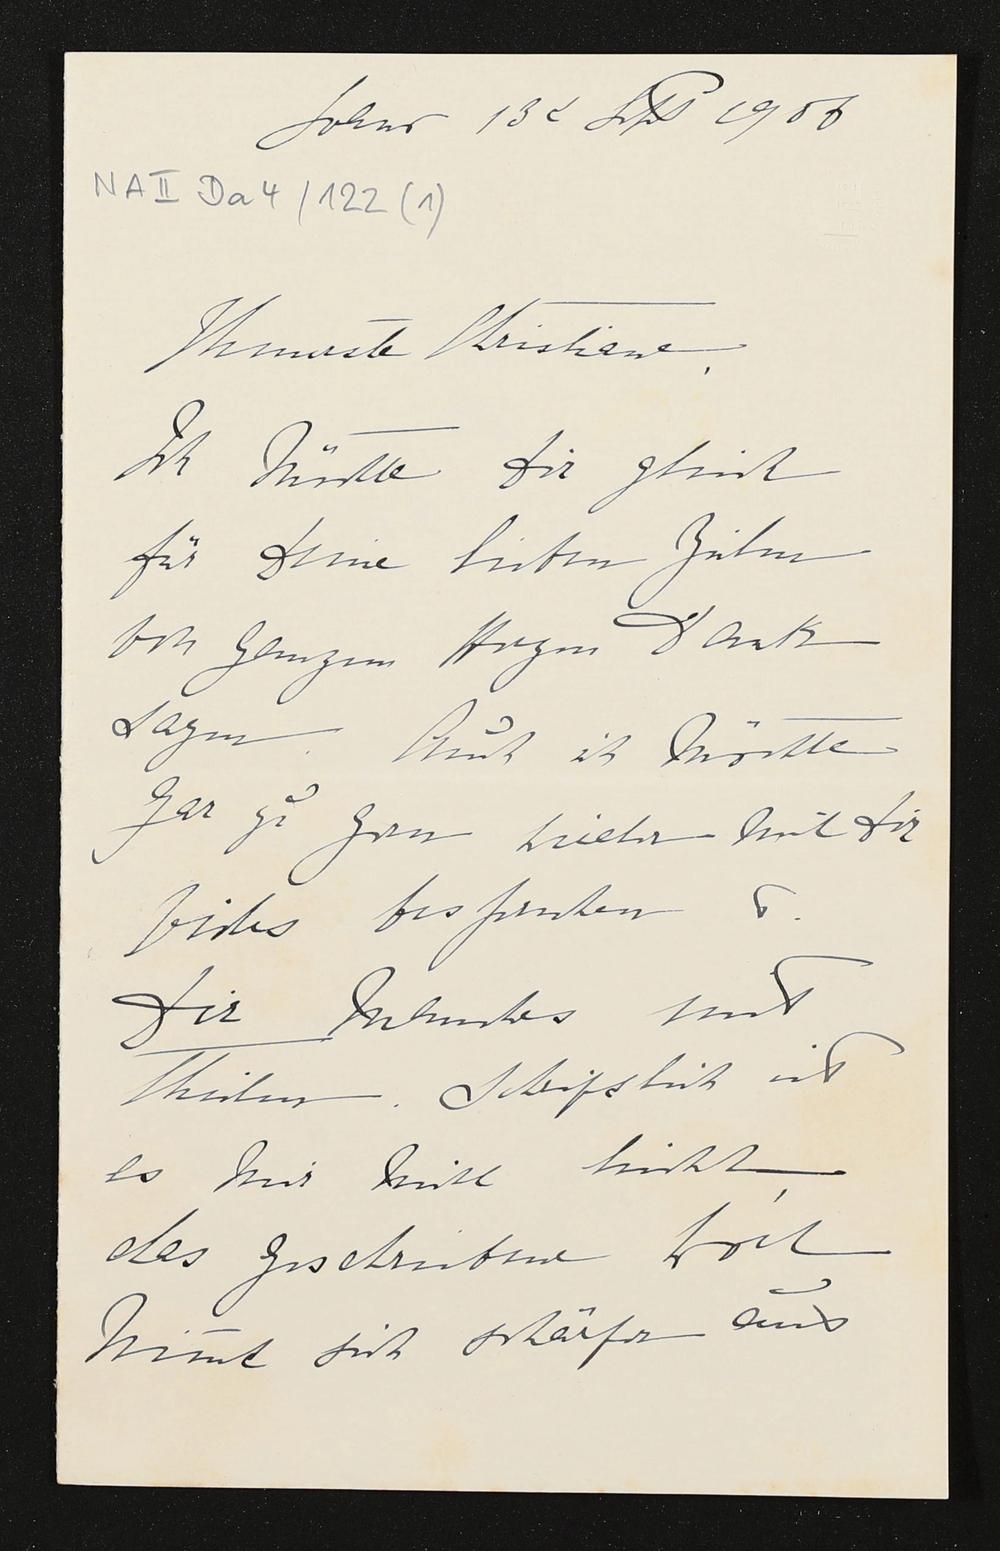 13t Sept 1906
NA II Da 4 / 122 (1)
Theuerste Christiane,
Ich möchte Dir gleich
für Deine lieben Zeilen
von ganzem Herzen Dank
sagen. Auch ich möchte
gar zu gern wieder mit Dir
Vieles besprechen u.
Dir Manches mit
Theilen. Schriftlich ist
es mir nicht leicht,
das geschriebene Wort
nimt sich schärfer aus